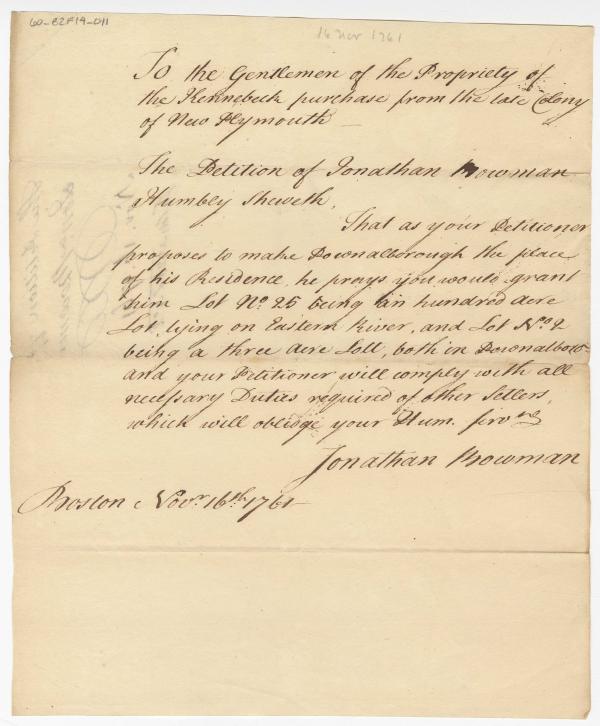 60-B2F19-011
16 Nov 1761
To the Gentlemen of the Propriety of
the Kennebeck purchase from the late Colony
of New Plymouth
The Petition of Jonathan Bowman
Humbly Sheweth,
That as your Petitioner
proposes to make Pownalborough the place
of his Residence, he prays you would grant
him Lot No. 25 being an hundred acre
Lot, lying on Eastern River, and Lot No. 2
being a three Acre Lott, both in Pownalboro
and your Petitioner will comply with all
necessary Duties required of other Settlers,
which will obliege your Hum. Serv
Jonathan Bowman
Boston Novr. 16th. 1761